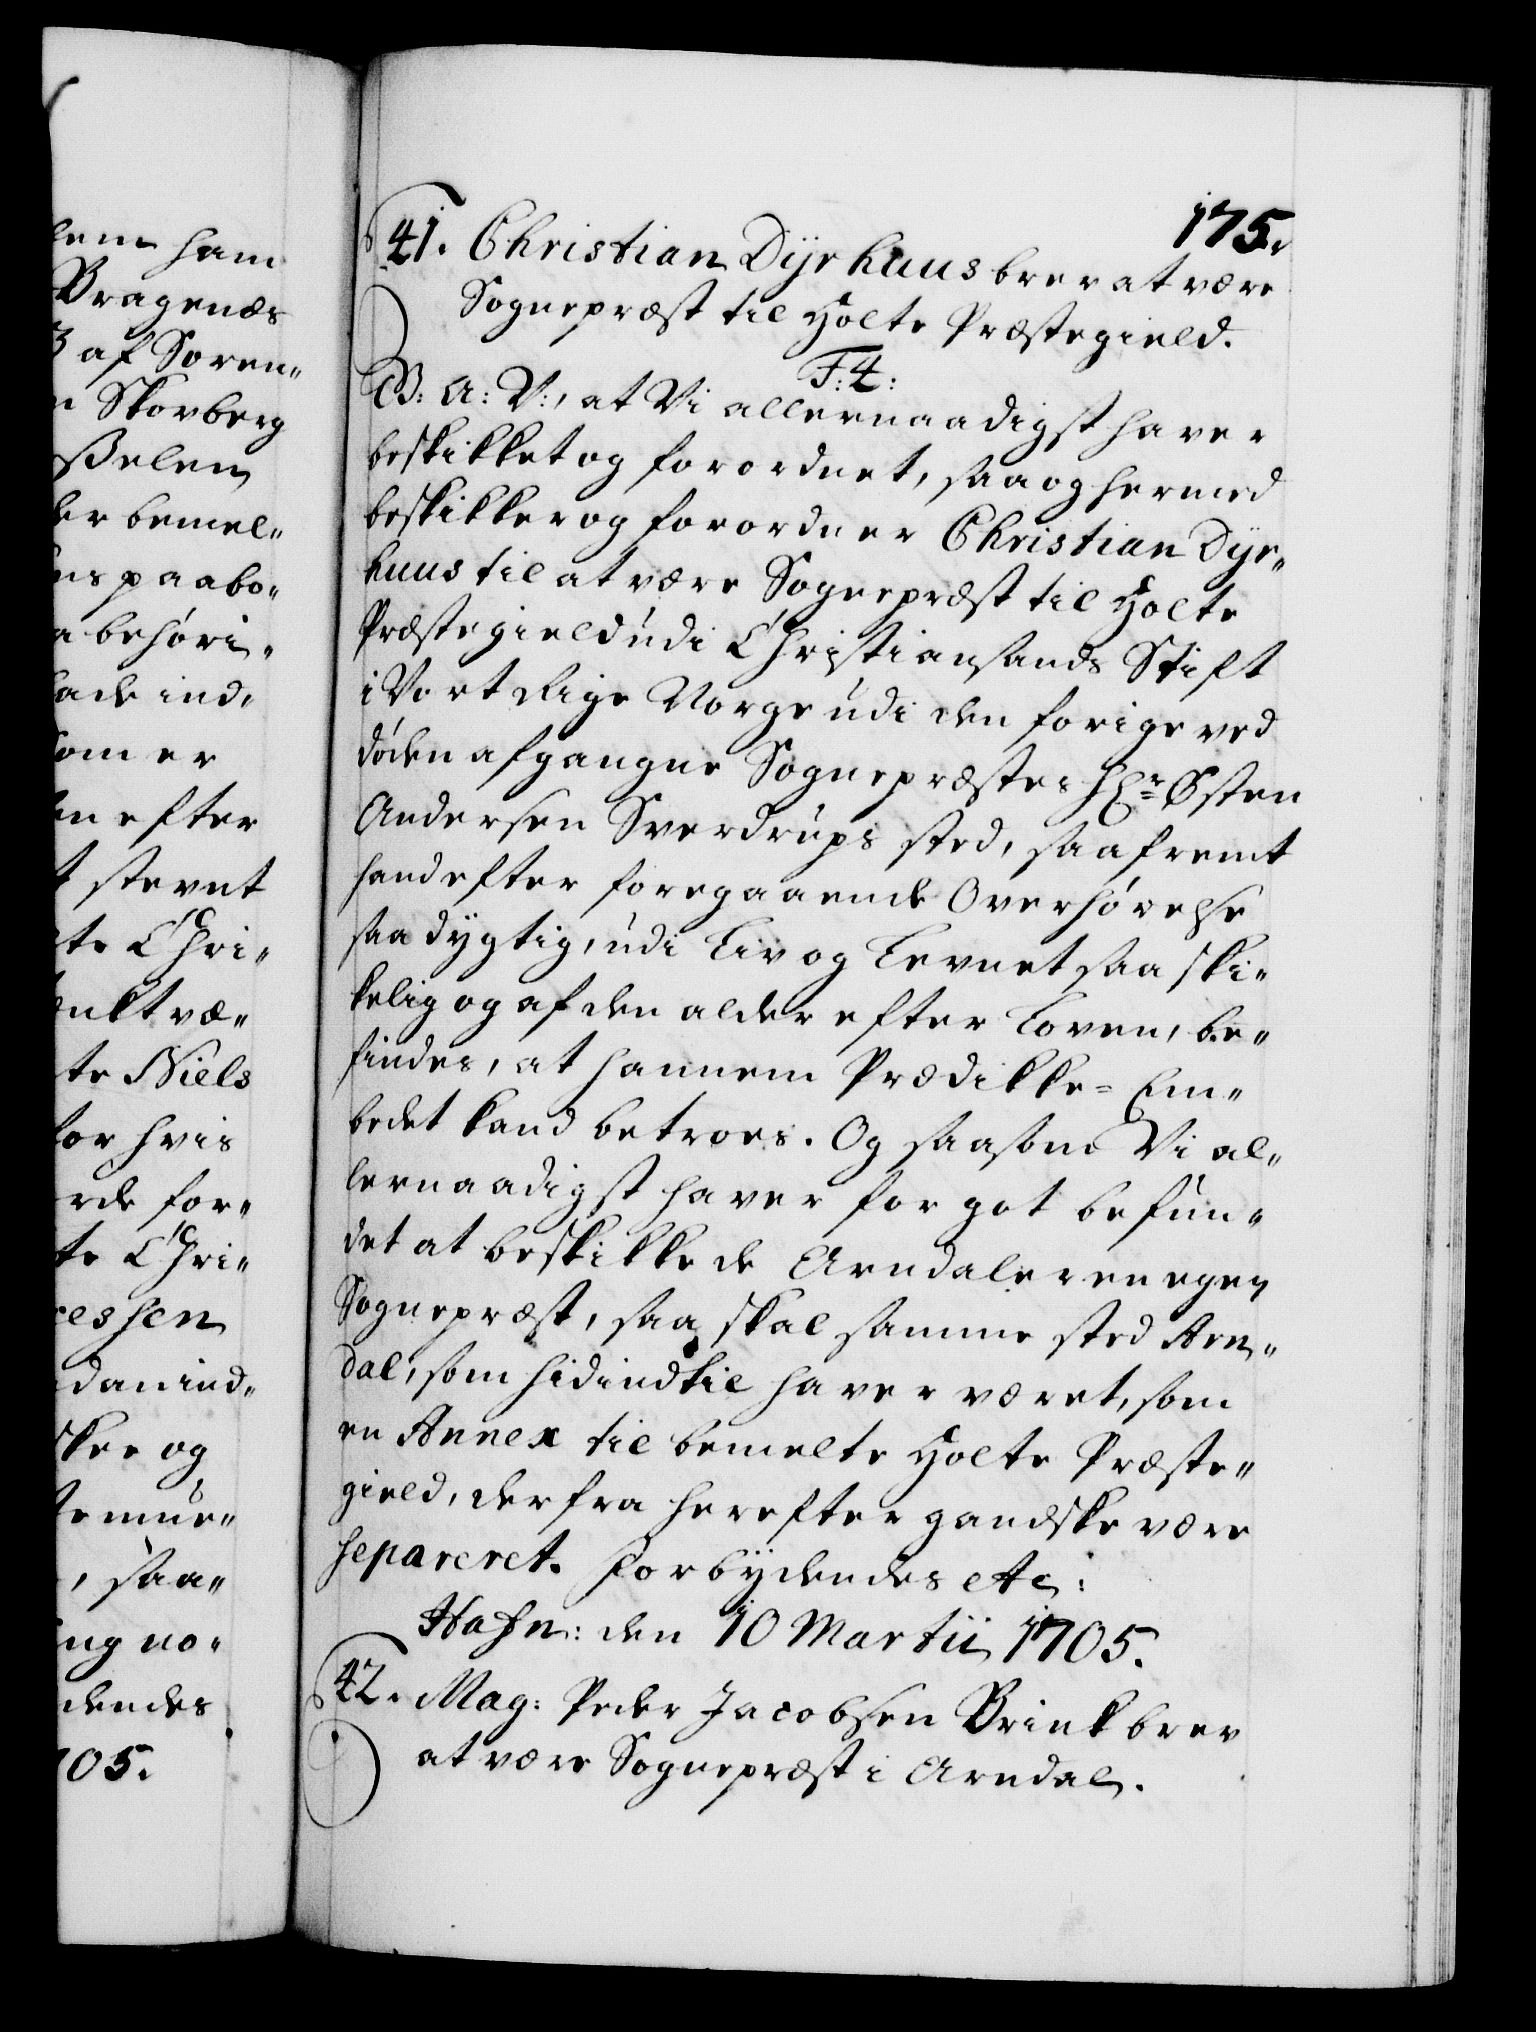 lem ham
Bragenæs
3 af Søren„
n Skovberg
sselen
der bemel„
ns paabo„
a behøri„
lade ind„
som er
en efter
t stevnt
te Chri„
enkt væ„
te Niels
for hvis
rde for„
te Chri„
essen
danind„
skee og
temue„
, saa„
ing no„
dendes
705.
175.
41. Christian Dyrhuus brev at være
Sognepræst til Holte Præstegield.
F: 4:
G: A: V:, at Vi allernaadigst haver
beskikket og forordnet, saa og hermed
beskikker og forordner Christian Dyr„
huus til at være Sognepræst til Holte
Præstegield udi Christiansands Stift
i Vort Rige Norge udi den forige ved
døden afgangne Sognepræstes Hr Østen
Andersen Sverdrups sted, saafremt
hand efter foregaaende Overhørelse
saa dygtig, udi Liv og Levnet saa ski„
kelig og af den alder efter Loven, be„
findes, at hannem Prædikke-Em„
bedet kand betroes. Og saasom Vi al„
lernaadigst haver for got befun„
det at beskikke de Arndaler en egen
Sognepræst, saa skal samme sted Arn„
dal, som hidindtil haver været, som
en Annex til bemelte Holte Præste„
gield, derfra herefter gandske være
separeret. Forbydendes etc:
Hafn: den 10 Martii 1705.
42. Mag: Peder Jacobsen Brink brev
at være Sognepræst i Arndal.